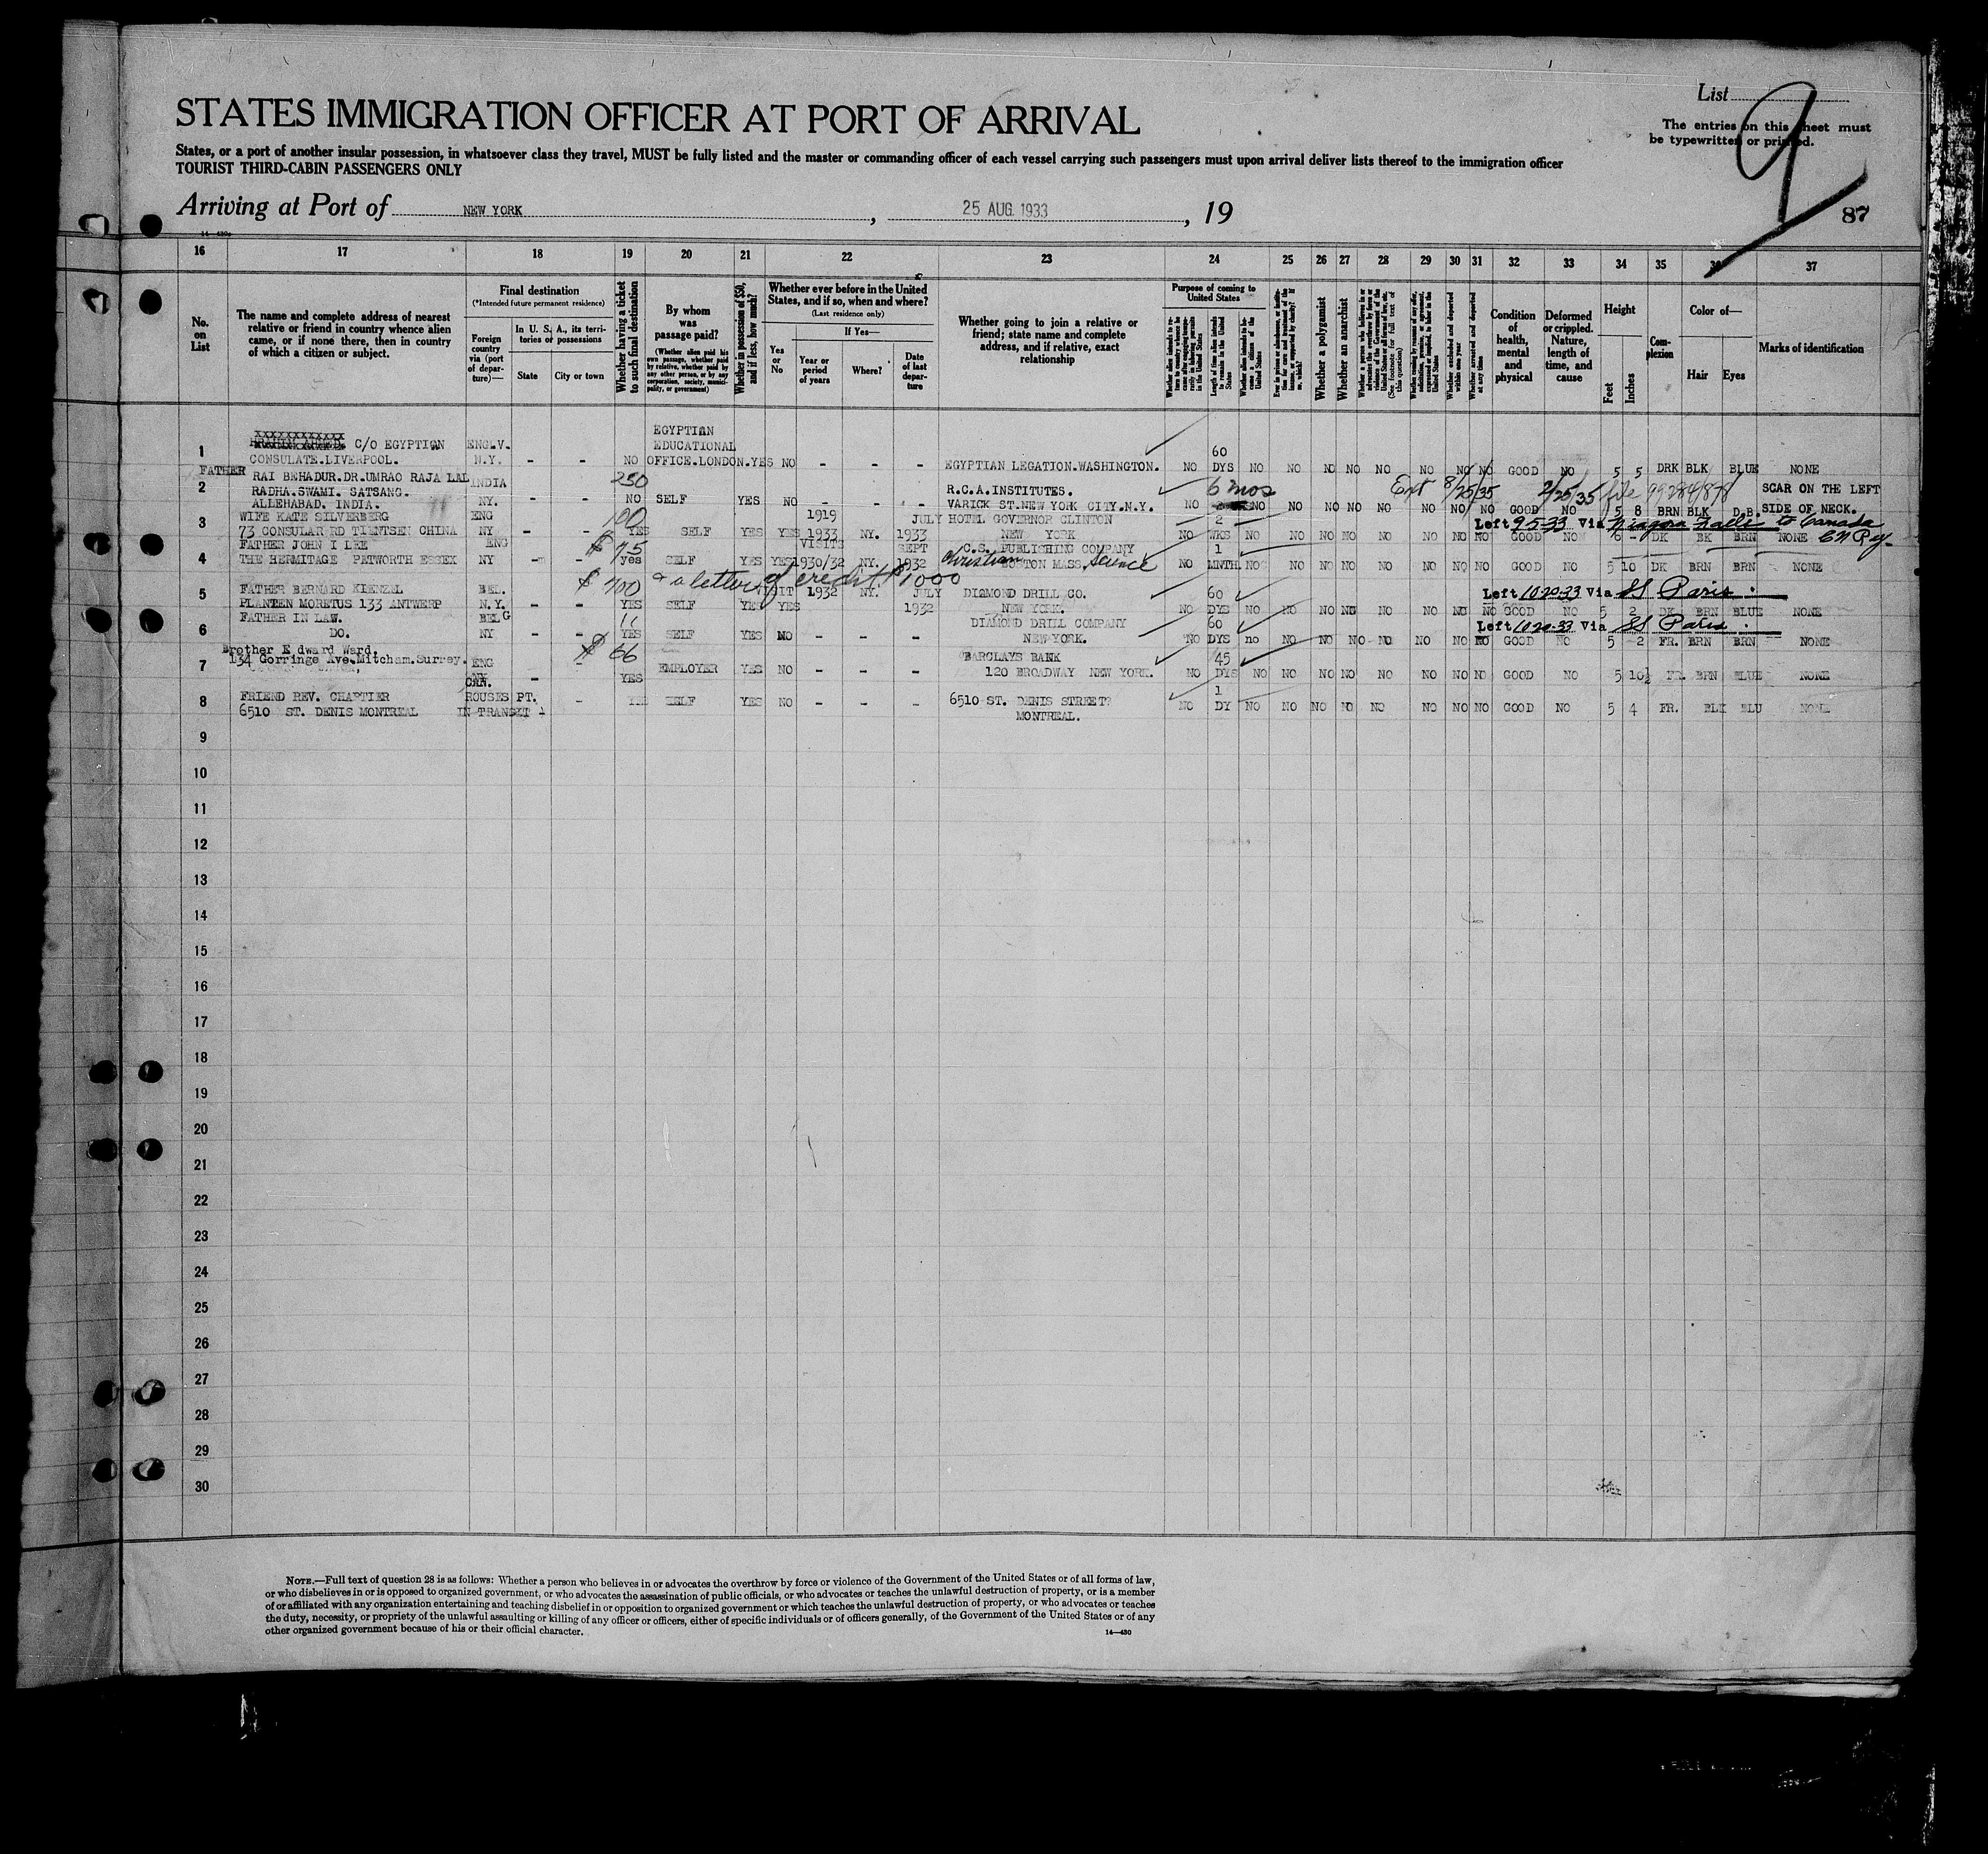 List
9
The entries on this sheet must
be typewritten or printed.
STATES IMMIGRATION OFFICER AT PORT OF ARRIVAL
States, or a port of another insular possession, in whatsoever class they travel, MUST be fully listed and the master or commanding officer of each vessel carrying such passengers must upon arrival deliver lists thereof to the immigration officer
TOURIST THIRD-CABIN PASSENGERS ONLY
Arriving at Port of NEW YORK , 25 AUG. 1933 , 19
87
16 17 18 19 20 21 22 23 24 25 26 27 28 29 30 31 32 33 34 35 36 37
No. on List
The name and complete address of nearest relative or friend in country whence alien came, or if none there, then in country of which a citizen or subject.
Final destination
(*Intended future permanent residence)
Foreign country via (port of departure)—
In U. S. A., its territories or possessions
State
City or town
Whether having a ticket to such final destination
By whom was passage paid?
(Whether alien paid his own passage, whether paid by relative, whether paid by any other person, or by any corporation, society, municipality, or government)
Whether in possession of $50, and if less, how much?
Whether ever before in the United States, and if so, when and where?
(Last residence only)
Yes or No
If Yes—
Year or period of years
Where?
Date of last departure
Whether going to join a relative or friend; state name and complete address, and if relative, exact relationship
Purpose of coming to United States
Length of time alien intends to remain in the United States
Whether a polygamist
Whether an anarchist
(See footnote for full text of this question)
Whether excluded and deported within one year
Whether arrested and deported at any time
Condition of health, mental and physical
Deformed or crippled. Nature, length of time, and cause
Height
Feet
Inches
Complexion
Color of—
Hair
Eyes
Marks of identification
1 C/O EGYPTIAN CONSULATE.LIVERPOOL. ENG.V. N.Y. - - NO EGYPTIAN EDUCATIONAL OFFICE.LONDON. YES NO - - - EGYPTIAN LEGATION.WASHINGTON. NO 60 DYS NO NO NO NO NO NO NO NO GOOD NO 5 5 DRK BLK BLUE NONE
2 FATHER RAI BEHADUR.DR.UMRAO RAJA LAL RADHA.SWAMI. SATSANG. ALLEHABAD. INDIA. INDIA NY. - - 250 NO SELF YES NO - - - R.C.A.INSTITUTES. VARICK ST.NEW YORK CITY.N.Y. NO 6 mos NO NO NO NO NO NO NO NO GOOD NO 5 8 BRN BLK D.B. SCAR ON THE LEFT SIDE OF NECK.
Ext 8/25/35 2/25/35 file
3 WIFE KATE SILVERBERG 73 CONSULAR RD TIENTSEN CHINA ENG NY - - 100 YES SELF YES YES 1919 1933 NY. JULY 1933 HOTEL GOVERNOR CLINTON NEW YORK NO 2 WKS NO NO NO NO NO NO NO NO GOOD NO 6 - DK BK BRN NONE
Left 9-5-33 Via Niagara Falls to Canada
4 FATHER JOHN I LEE THE HERMITAGE PETWORTH ESSEX ENG NY - - $75 yes SELF YES YES VISITS 1930/32 NY. SEPT 1932 C.S. PUBLISHING COMPANY Christian Science BOSTON MASS. NO 1 MNTH. NO NO NO NO NO NO NO NO GOOD NO 5 10 DK BRN BRN NONE
5 FATHER BERNARD KIENZEL PLANTEN MORETUS 133 ANTWERP BEL. N.Y. - - $700 & a letter of credit $1000 YES SELF YES YES VISIT 1932 NY. JULY 1932 DIAMOND DRILL CO. NEW YORK. NO 60 DYS NO NO NO NO NO NO NO NO GOOD NO 5 2 DK BRN BLUE NONE
Left 10-20-33 Via SS Paris
6 FATHER IN LAW. DO. BELG NY - - " YES SELF YES NO - - - DIAMOND DRILL COMPANY NEW-YORK. NO 60 DYS no NO NO NO NO NO NO NO GOOD NO 5 2 FR. BRN BRN NONE
Left 10-20-33 Via SS Paris
7 Brother Edward Ward. 134 Gorringe Ave.Mitcham.Surrey. ENG - - $66 YES EMPLOYER YES NO - - - BARCLAYS BANK 120 BROADWAY NEW YORK. NO 45 DYS NO NO NO NO NO NO NO NO GOOD NO 5 10½ FR. BRN BLUE NONE
8 FRIEND REV. CHARTIER 6510 ST. DENIS MONTREAL CAN. ROUSES PT. IN TRANSIT - YES SELF YES NO - - - 6510 ST. DENIS STREET? MONTREAL. NO 1 DY NO NO NO NO NO NO NO NO GOOD NO 5 4 FR. BLK BLU NONE
9
10
11
12
13
14
15
16
17
18
19
20
21
22
23
24
25
26
27
28
29
30
NOTE.—Full text of question 28 is as follows: Whether a person who believes in or advocates the overthrow by force or violence of the Government of the United States or of all forms of law,
or who disbelieves in or is opposed to organized government, or who advocates the assassination of public officials, or who advocates or teaches the unlawful destruction of property, or is a member
of or affiliated with any organization entertaining and teaching disbelief in or opposition to organized government or which teaches the unlawful destruction of property, or who advocates or teaches
the duty, necessity, or propriety of the unlawful assaulting or killing of any officer or officers, either of specific individuals or of officers generally, of the Government of the United States or of any
other organized government because of his or their official character.
14—430